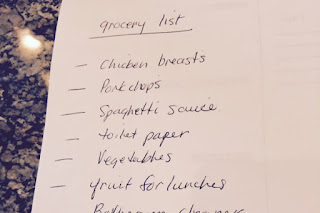 grocery list
- Chicken breasts
- Porkchops
- Spaghetti sauce
- toilet paper
- Vegetables
- fruit for lunches